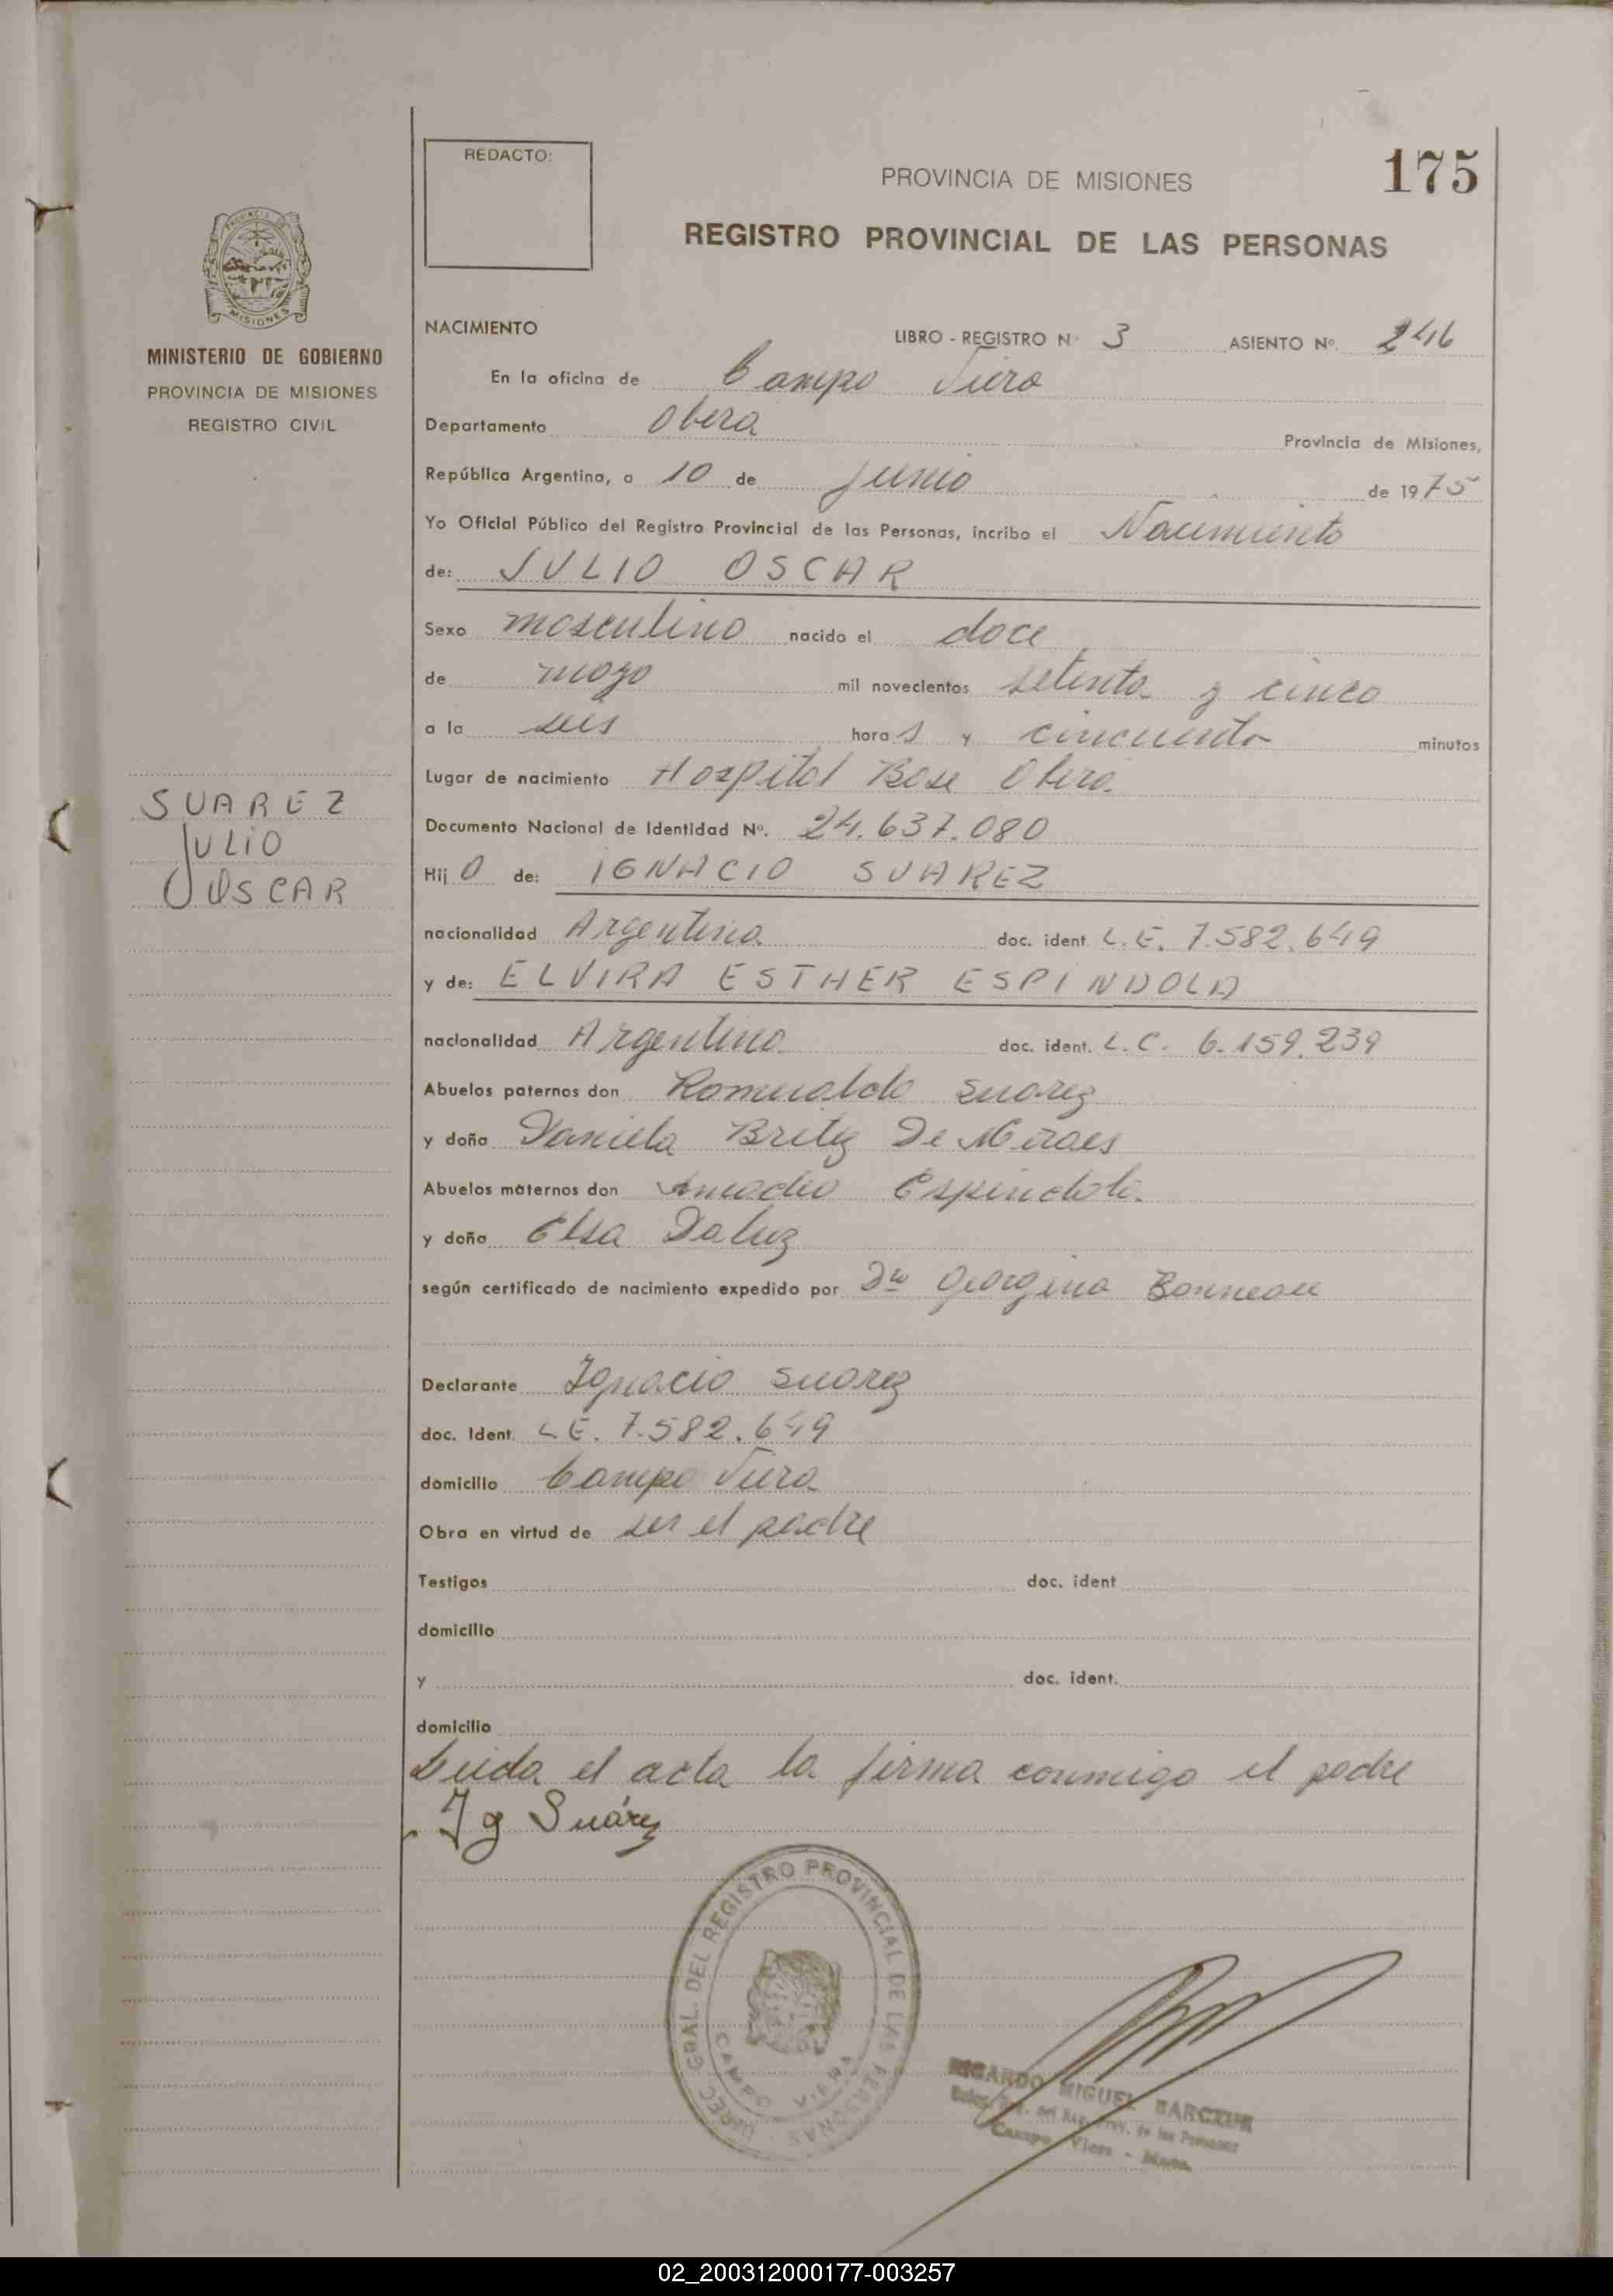 REDACTO:
PROVINCIA DE MISIONES
175
REGISTRO PROVINCIAL DE LAS PERSONAS
MISIONES
MINISTERIO DE GOBIERNO
PROVINCIA DE MISIONES
REGISTRO CIVIL
NACIMIENTO LIBRO - REGISTRO N° 3 ASIENTO Nº. 246
En la oficina de Campo Viera
Departamento Obera Provincia de Misiones,
República Argentina, a 10 de junio de 1975
Yo Oficial Público del Registro Provincial de las Personas, incribo el Nacimiento
de: JULIO OSCAR
Sexo masculino nacido el doce
de mayo mil novecientos setenta y cinco
a la seis horas y cincuenta minutos
Lugar de nacimiento Hospital Base Obera.
SUAREZ
JULIO
OSCAR
Documento Nacional de Identidad Nº. 24.637.080
Hijo de: IGNACIO SUAREZ
nacionalidad Argentina doc. ident. L.E. 7.582.649
y de: ELVIRA ESTHER ESPINDOLA
nacionalidad Argentina doc. ident. L.C. 6.159.239
Abuelos paternos don Romualdo Suarez
y doña Daniela Britez De Miraes
Abuelos maternos don Amadeo Espindola.
y doña Elsa Daluz
según certificado de nacimiento expedido por Dra Georgina Bonneau
Declarante Ignacio Suarez
doc. Ident. L.E. 7.582.649
domicilio Campo Viera
Obra en virtud de ser el padre
Testigos doc. ident
domicilio
y doc. ident.
domicilio
Leida el acta la firma conmigo el padre
Ig Suárez
DIREC. GRAL. DEL REGISTRO PROVINCIAL DE LAS PERSONAS
CAMPO VIERA
RICARDO MIGUEL
del Reg. Prov. de las Personas
Campo Viera - Mnes.
02_200312000177-003257